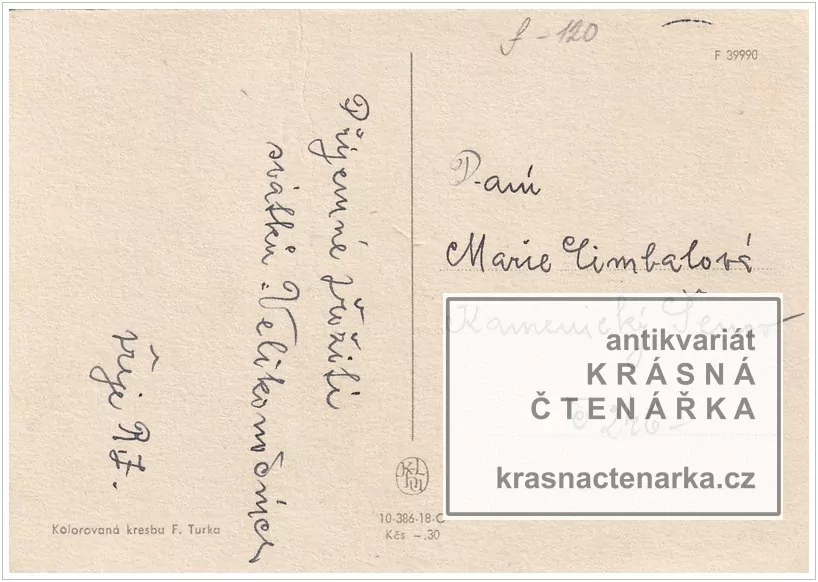 f - 120
F 39990
Příjemné prožití
svátků Velikonočních
přeje
Paní
Marie Cimbalová
Kamenický
antikvariát
KRÁSNÁ
ČTENÁŘKA
krasnactenarka.cz
10-386-18-C
Kčs -.30
Kolorovaná kresba F. Turka